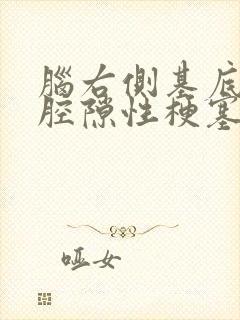 腦右側基底
腔隙性梗塞
哑女